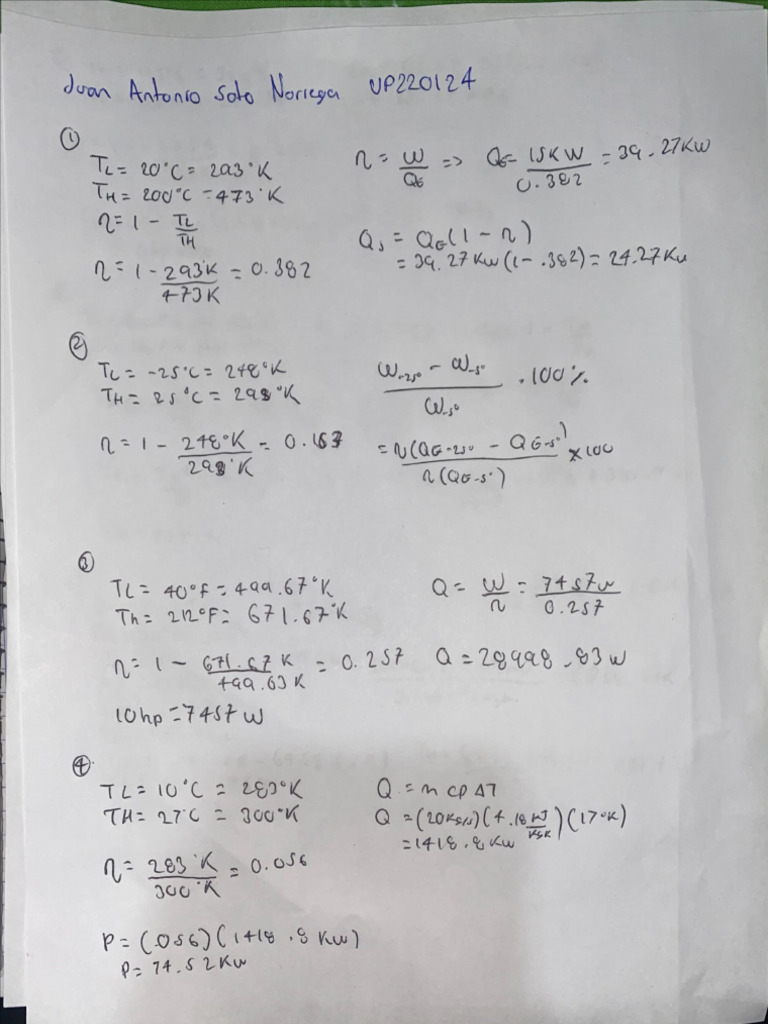 Juan Antonio Soto Noriega UP220124
①
TL = 20°C = 293°K
TH = 200°C = 473°K
η = 1 - TL/TH
η = 1 - 293K/473K = 0.382
η = W/QE => QE = 15KW/0.382 = 39.27KW
Qs = QE(1 - η)
= 39.27KW(1 - .382) = 24.27KW
②
TL = -25°C = 248°K
TH = 25°C = 298°K
η = 1 - 248°K/298°K = 0.167
W-25° - W-5°/W-5° . 100%
= η(QE-25° - QE-5°)/η(QE-5°) x100
③
TL = 40°F = 499.67°K
Th = 212°F = 671.67°K
η = 1 - 671.67 K/499.63 K = 0.257
10hp = 7457 W
Q = W/η = 7457w/0.257
Q = 28998.83 w
④
TL = 10°C = 283°K
TH = 27°C = 300°K
η = 283°K/300°K = 0.056
P = (.056)(1418.8 KW)
P = 74.52KW
Q = m cp ΔT
Q = (20KS/N)(4.18 KJ/KgK)(17°K)
= 1418.8KW